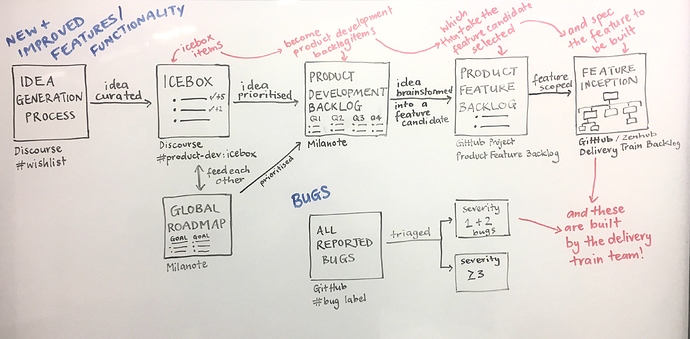 NEW +
IMPROVED
FEATURES/
FUNCTIONALITY
icebox
items
become
product development
backlog items
which
then take the
feature candidate
selected
and spec
the feature to
be built
IDEA
GENERATION
PROCESS
Discourse
#wishlist
idea
curated
ICEBOX
√+5
√+2
Discourse
#product-dev:icebox
idea
prioritised
PRODUCT
DEVELOPMENT
BACKLOG
Q1 Q2 Q3 Q4
Milanote
idea
brainstormed
into a
feature
candidate
PRODUCT
FEATURE
BACKLOG
GitHub Project
Product Feature Backlog
feature
scoped
FEATURE
INCEPTION
GitHub / Zenhub
Delivery Train Backlog
feed each
other
prioritised
GLOBAL
ROADMAP
GOAL GOAL
Milanote
BUGS
ALL
REPORTED
BUGS
GitHub
#bug label
triaged
severity
1 + 2
bugs
severity
≥3
and these
are built
by the delivery
train team!